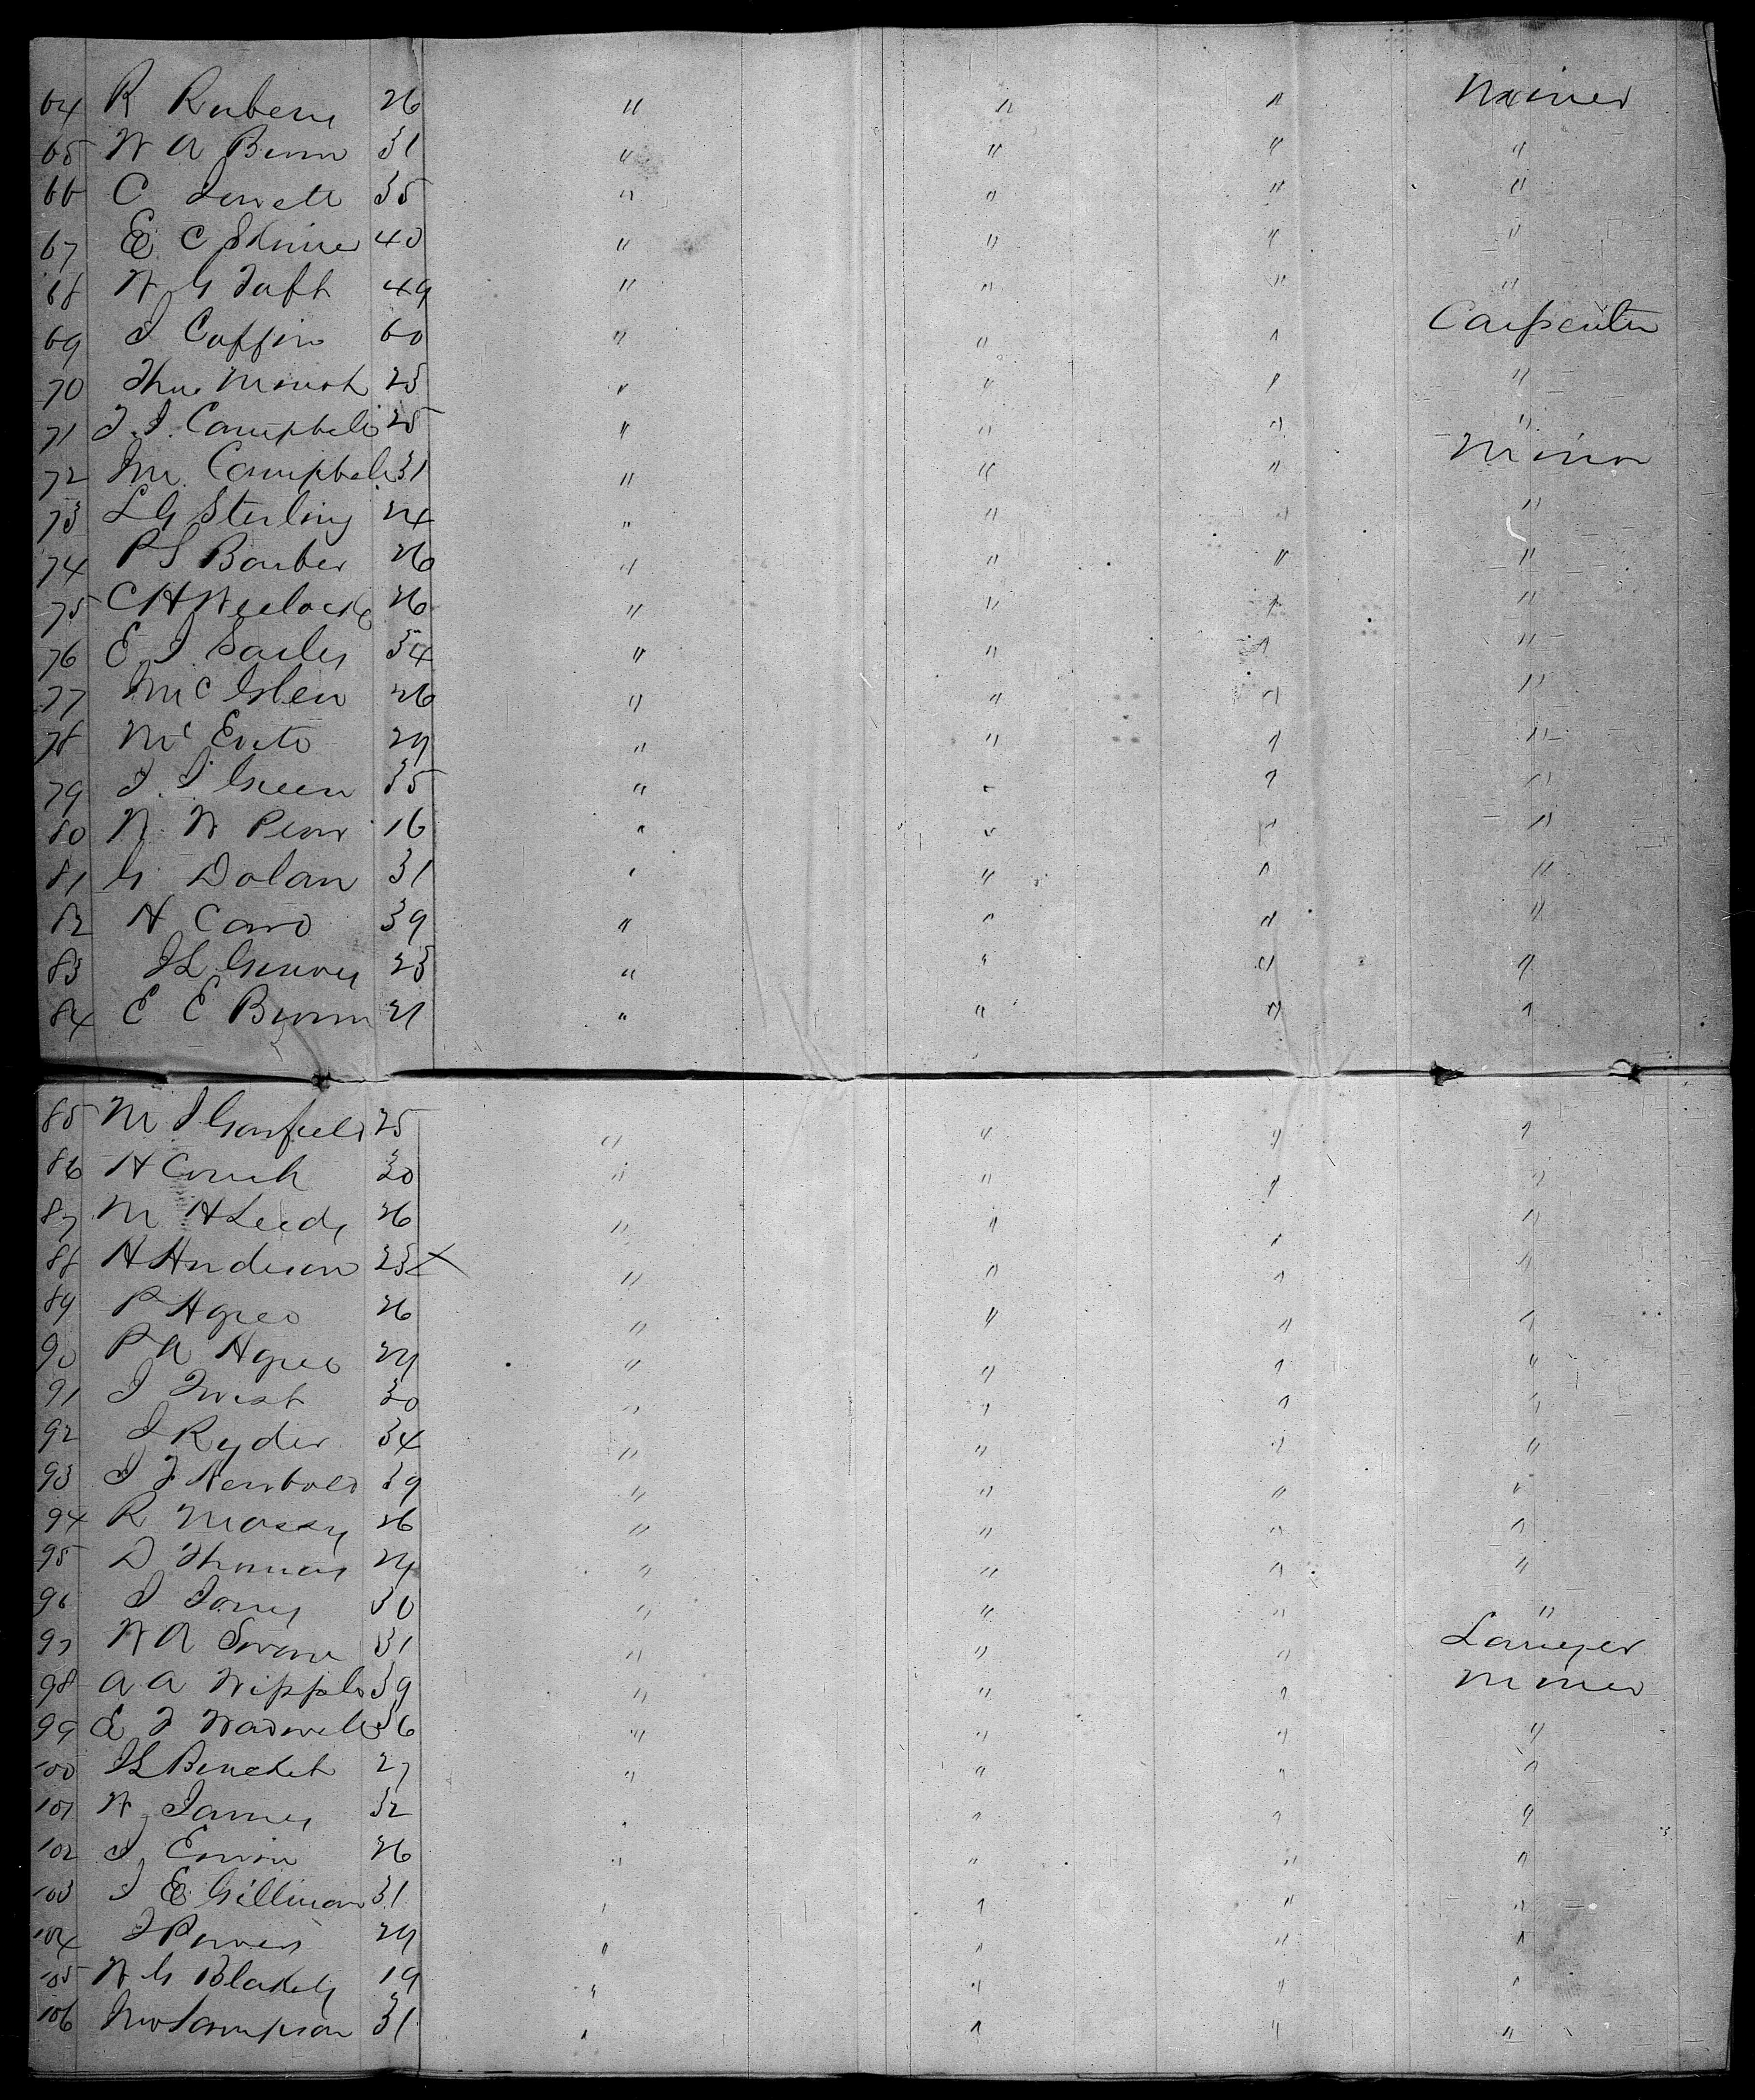 64 R Rubens 26 " " " Miner
65 W A Bunn 31 " " " "
66 C Jewett 35 " " " "
67 E C Skinner 40 " " " "
68 W G Taft 49 " " " "
69 J Coffin 60 " " " Carpenter
70 Thos 25 " " " "
71 T. J. Campbell 25 " " " "
72 M. Campbell 31 " " " Miner
73 L G Sterling 24 " " " "
74 P S Barber 26 " " " "
75 C H 26 " " " "
76 E J 34 " " " "
77 McGlen 26 " " " "
78 29 " " " "
79 J. J. Green 35 " " " "
80 16 " " " "
81 G Dolan 31 " " " "
82 H Caro 39 " " " "
83 J L 23 " " " "
84 E E Bunn 21 " " " "
85 M J Garfield 25 " " " "
86 H Couch 30 " " " "
87 M H Leeds 26 " " " "
88 H Anderson 23 X " " " "
89 P Agreo 26 " " " "
90 P A Agreo 29 " " " "
91 J Twist 30 " " " "
92 J Ryder 34 " " " "
93 J T Newbold 39 " " " "
94 R Massy 26 " " " "
95 D Thomas 29 " " " "
96 J Jones 30 " " " "
97 W A Swan 31 " " " Lawyer
98 A A Wipple 39 " " " Miner
99 E T Wadwell 36 " " " "
100 J L 27 " " " "
101 W James 32 " " " "
102 J Erwin 26 " " " "
103 J E Gillman 31 " " " "
104 J Powers 29 " " " "
105 W G Blakely 19 " " " "
106 Sampson 31 " " " "